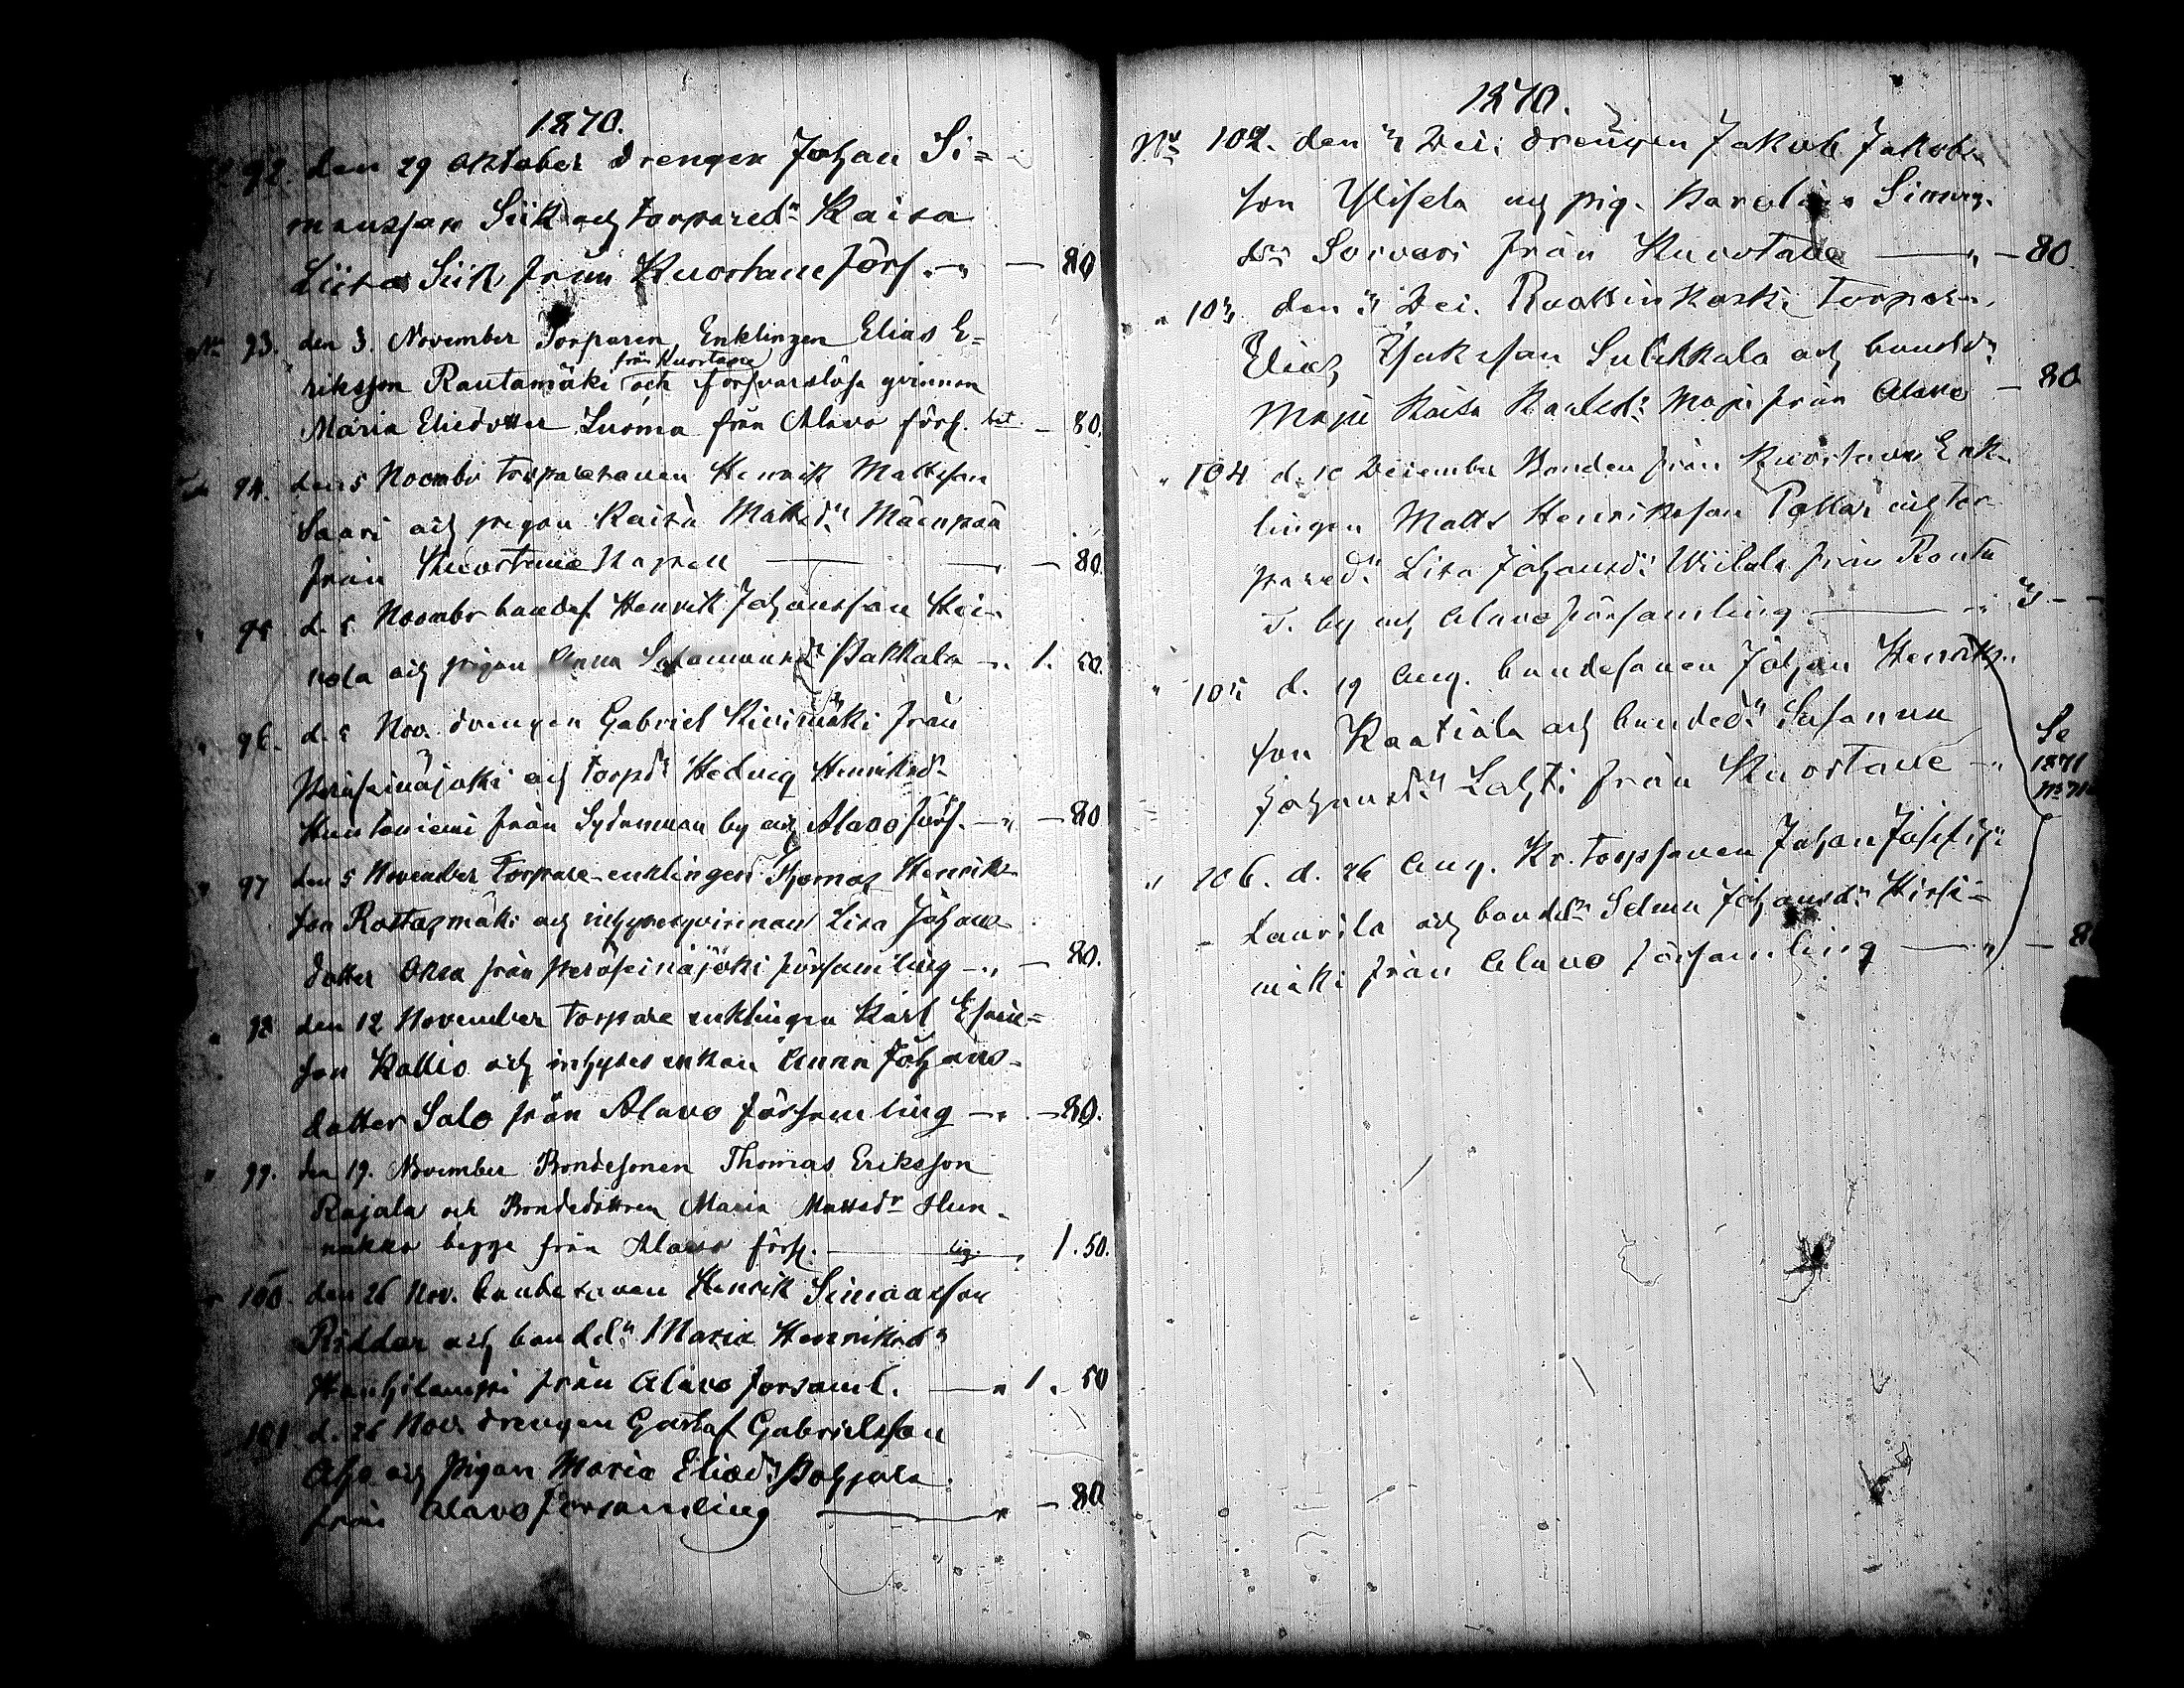 1870.
92. den 29 Oktober drengen Johan Si=
monsson Siik och torpared:r Kaisa
Liisa Siik från Kuortane förs. „ — 80
No 93. den 3. November Torparen, Enklingen Elias E=
från Kuortane
riksson Rautamäki och försvarslösa qvinnan
Maria Eliedotter Luoma från Alavo förs. bet. — 80.
94. den 5 Novembr torparesonen Henrik Mattsson
Saari och pigan Kaisa Mattsd:r Mäenpää
från Kuortane Kapell — — 80.
95. d. 5 Novembr bondes. Henrik Johansson Hei-
nola och pigan Anna Salamonsd:r Pakkala „ 1. 50.
96. d. 5 Nov. drengen Gabriel Kivimäki från
Peräseinäjoki och torpd:r Hedvig Henriksd:r
från Sydänmaa by och Alavo förs. — „ — 80
„ 97 den 5 November Torpare enklingen Thomas Henriks-
son Rostasmäki och inhysesqvinnan Lisa Johans-
dotter Oksa från Peräseinäjoki församling — „ — 80.
„ 98 den 12 November torpare enklingen Karl Esaias=
son Kallio och inhyses enkan Anna Johans-
dotter Salo från Alavo församling — „ — 80.
„ 99. den 19. November Bondesonen Thomas Eriksson
Rajala och Bondedottren Maria Mattsd:r Hun-
nakko begge från Alavo förs. — lig. „ 1. 50.
100. den 26 Nov. bondesonen Henrik Simonsson
Riddar och bonded:r Maria Henriksd:r
från Alavo forsaml. — „ 1. 50
101. d. 26 Nov. drengen Gustaf Gabrielsson
Aho och Pigan Maria Eliaed:r Pohjala
från Alavo forsamling — „ — 80
1870.
No 102. den 3 Dec. drengen Jakob Jakobs-
son Ylisela och pig. Karolina Simons-
d:r Sorvari från Kuortane — „ — 80.
„ 103 den 3 Dec. Ruottinkoski Torpar-
Elias Isaksson Sulkkala och bonded:r
Kaisa Karlsd:r från Alavo — 80
„ 104 d. 10 December Bonden från Kuortane Enk-
lingen Matts Henriksson och tor-
pared:r Lisa Johansd:r Wiitala från Rantu
T. by och Alavo församling — „ 3 - -
„ 105 d. 19 Aug. bondesonen Johan Henriks-
son Kaatiala och bonded:r Susanna
Johansd:r Lahti från Kuortane — „
Se
1871
No 71
„ 106. d. 26 Aug. Kr. torpsonen Johan Josefss:
Laurila och bonded:r Selma Johansd:r Hirsi=
mäki från Alavo församling — „ — 80